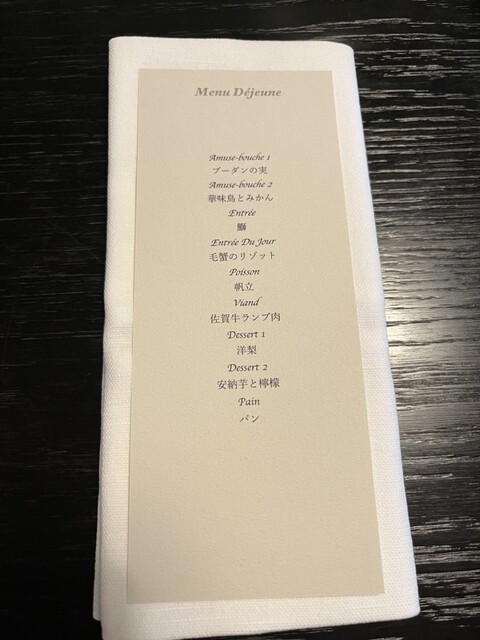 Menu Déjeune
Amuse-bouche 1
ブーダンの実
Amuse-bouche 2
華味鳥とみかん
Entrée
鰤
Entrée Du Jour
毛蟹のリゾット
Poisson
帆立
Viand
佐賀牛ランプ肉
Dessert 1
洋梨
Dessert 2
安納芋と檸檬
Pain
パン